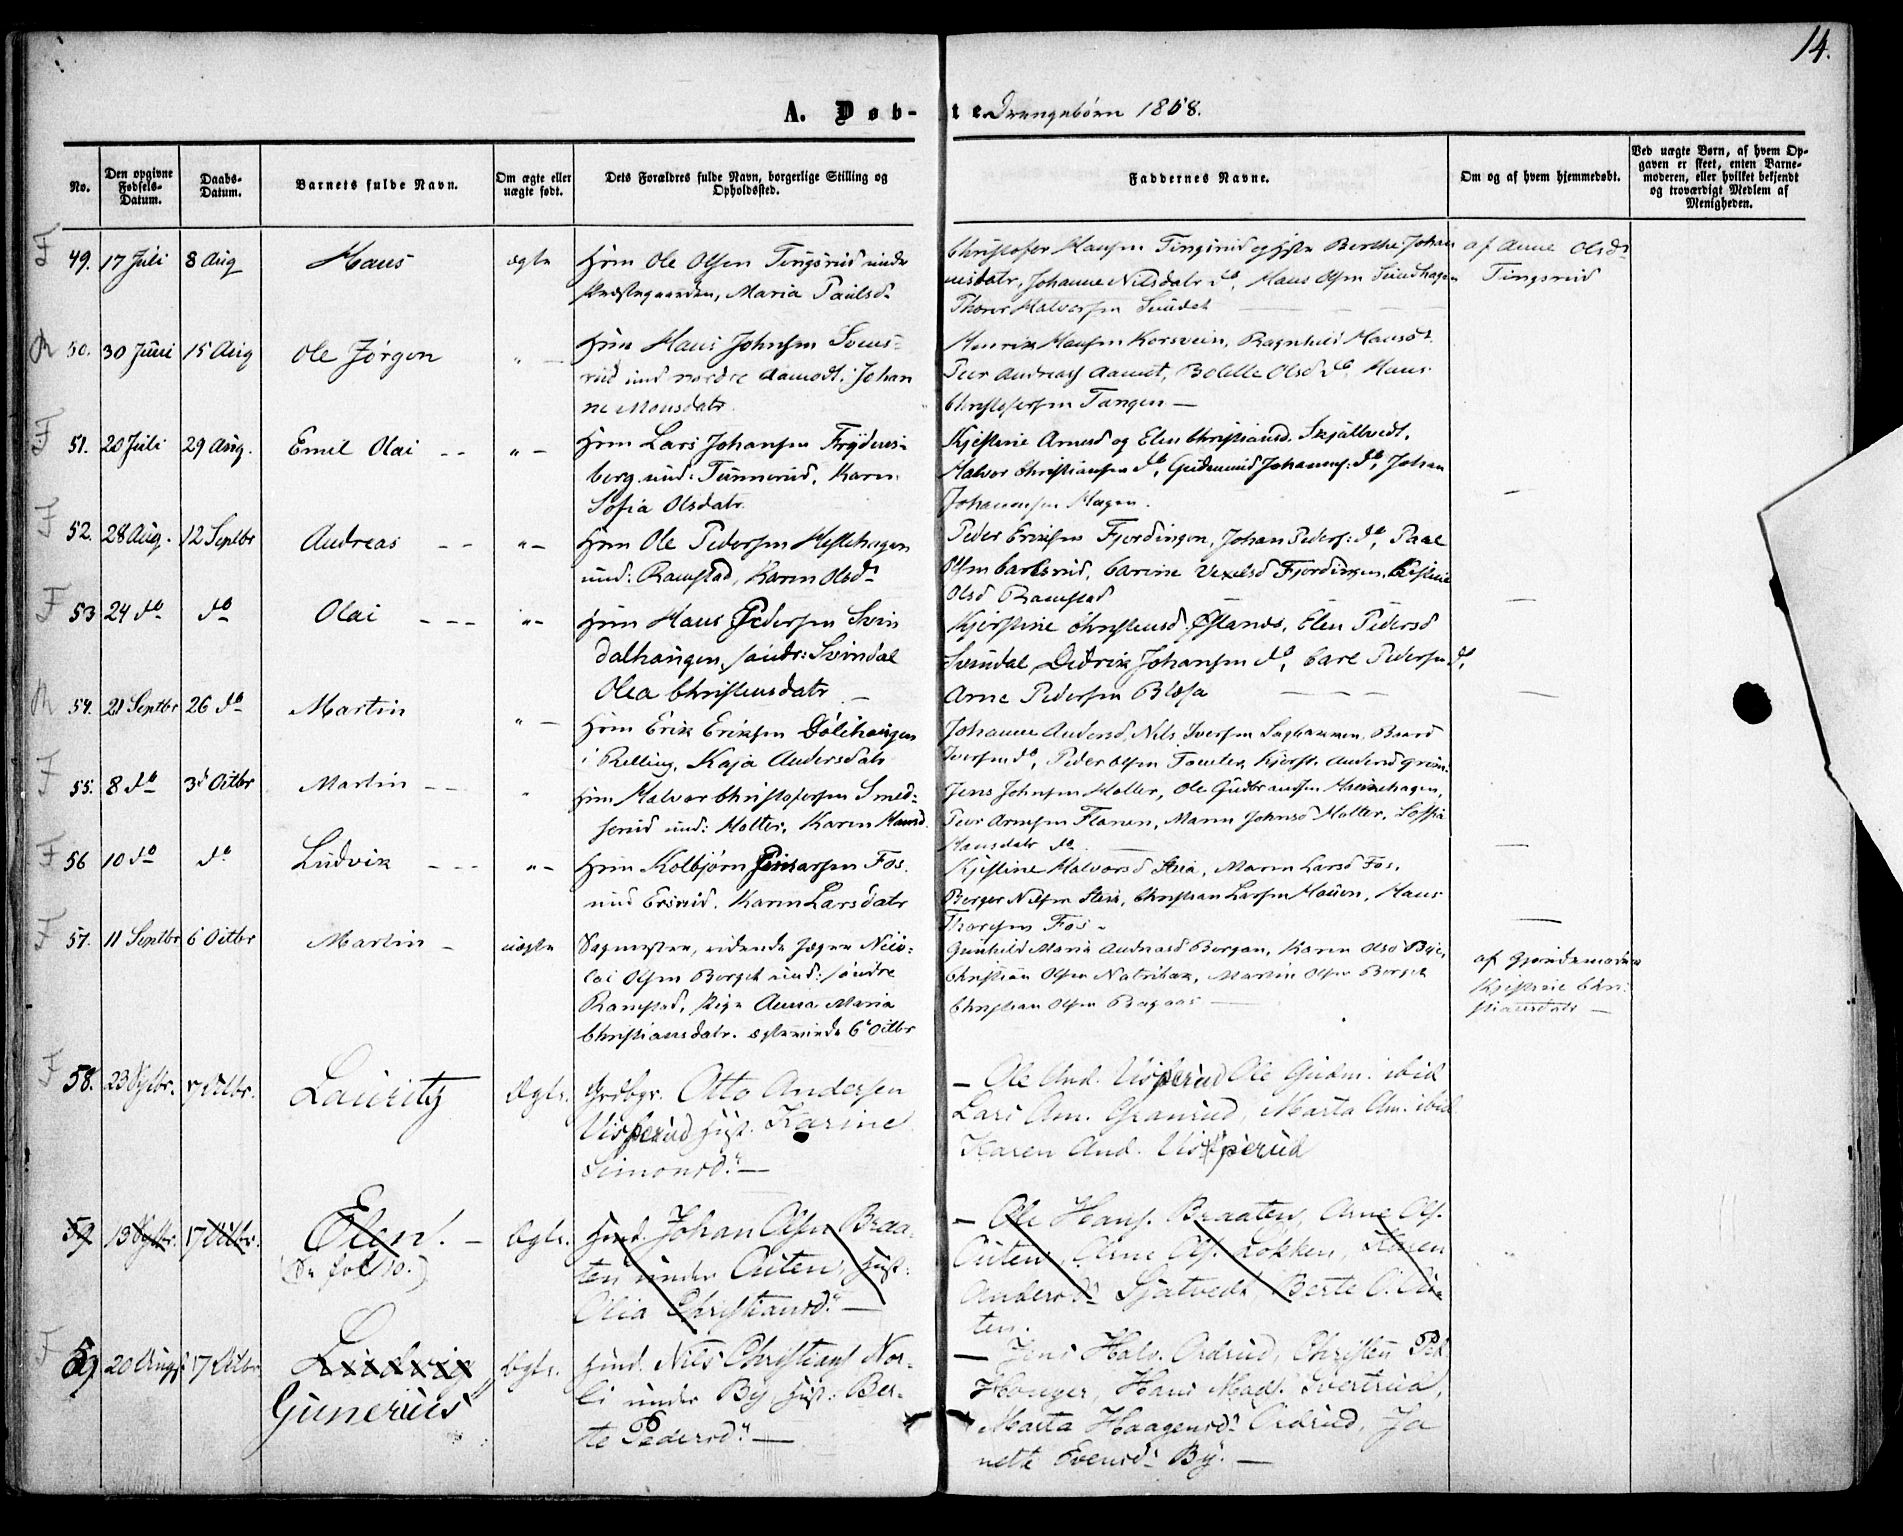 14.
A. Døb-te Drengebørn 1868.
No.
Den opgivne Fødsels-Datum.
Daabs-Datum.
Barnets fulde Navn.
Om ægte eller uægte født.
Dets Forældres fulde Navn, borgerlige Stilling og Opholdssted.
Faddernes Navne.
Om og af hvem hjemmedøbt.
Ved uægte Børn, af hvem Opgaven er skeet, enten Barnemoderen, eller hvilket bekjendt og troværdigt Medlem af Menigheden.
49. 17 Juli 8 Aug Hans ægte
Hm Ole Olsen Tingsrud unde
Præstegaarden, Maria Paulsd.
Christofer Hansen Tingsrud og Berthe Johan
nisdatr, Johanne Nilsdatr do, Hans Olsen Sundhagen
Thorer Halvorsen Sundet
af Anne Olsdr
Tingsrud
50. 30 Juni 15 Aug Ole Jørgen " —
Hm Hans Johnsen Svens-
rud und nordre Aamodt, Johan
ne Monsdatr.
Henrik Hansen Korsvein, Ragnhild Hansdr.
Peer Andreas Aamot, Bolette Olsd do, Hans
Christofersen Tangen —
51. 20 Juli 29 Aug. Emil Olai - - " —
Hm Lars Johansen Frydens-
berg und: Tunnerud, Karen
Sofia Olsdatr.
Kjestine Arnesd og Elen Christiansd. Skjatvedt,
Halvor Christiansen do, Gudmund Johannes: do, Johan
Johannesen Hagen.
—
52. 28 Aug. 12 Septbr Andreas - - " —
Hm Ole Pedersen Hestehagen
und: Ramstad, Karen Olsdr
Peder Eriksen Fjordingen, Johan Peders: do, Paal
Olsen Carlsrud, Carine Vexelsd Fjordingen,
Olsd Ramstad
—
53 24 do do Olai - - - " -
Hm Hans Pedersen Svin
dalhaugen, søndr: Svindal
Olea Christensdatr —
Kjerstine Christensd. Østands, Elen Pedersd
Svindal, Didrik Johansen do, Carl Pedersen do,
Arne Pedersen Blasa
—
54. 21 Septbr 26 do Martin " —
Hm Erik Eriksen Dølihaugen
i Relling, Kaja Andersdatr
Johanne Andersd, Nils Iversen Sagbakken, Baard
Iversen do, Peder Olsen Tomter, Kjerst. Andersd
55. 8 do 3d Octbr Martin - - "
Hm Halvor Christofersen Smed-
serud und: Holter, Karen Hansd.
Jens Johnsen Holter, Ole Gudbrandsen
Peer Arnesen Flanen, Maren Johnsd Holter, Sofia
Hansdatr do.
—
56 10 do do Ludvik - - - " -
Hm Kolbjørn Einarsen Fos
und Ersrud, Karen Larsdatr
Kjestine Halvorsd Steia, Maren Larsd Fos,
Berger Nilsen Steia, Christian Larsen Mouen, Hans
Thorsen Fos.
—
57. 11 Septbr 6 Octbr Martin - uægte
Sagmester, ridende Jæger Nico-
lai Olsen Berget und: søndre
Ramstad, Pige Anna Maria
Christiansdatr. ægteviede 6te Octbr
Gunhild Maria Andreasd Bergan, Karen Olsd Bye,
Christian Olsen Natvibak, Martin Olsen Berget
Christian Olsen Bragaas —
af Gjordemoder
Kjestine Chri
stiansdatr —
58. 23 Septbr. 17 Octbr. Lauritz Ægte.
Grdbgr. Otto Andersen
Visperud Hust. Karine
Simonsd. —
— Ole And. Visperud Ole Gudm. ibid
Lars Am. Granrud, Marta Am. ibid
Karen And. Visperud
59 13 Septbr. 17 Octbr. Elen. - Ægte.
(Se fol 10.)
Hmd. Johan Olsen Braa-
ten under Auten, Hust:
Olia Christiansd. —
— Ole Hans. Braaten, Arne Ols.
Auten, Arne Ols. Løkken, Karen
Andersd. Sjatvedt, Berte O. Au-
ten.
59 20 Augst 17 Octbr Ludvig Ægte.
Gunerius
Hmd. Nils Christians Nor-
li under By, Hust: Ber-
te Pedersd. —
— Jens Halv. Ordrud, Christen Ped
Honger, Hans Mads. Svertrud,
Marta Haagensd. Ordrud, Ja
nette Evensd. By. —